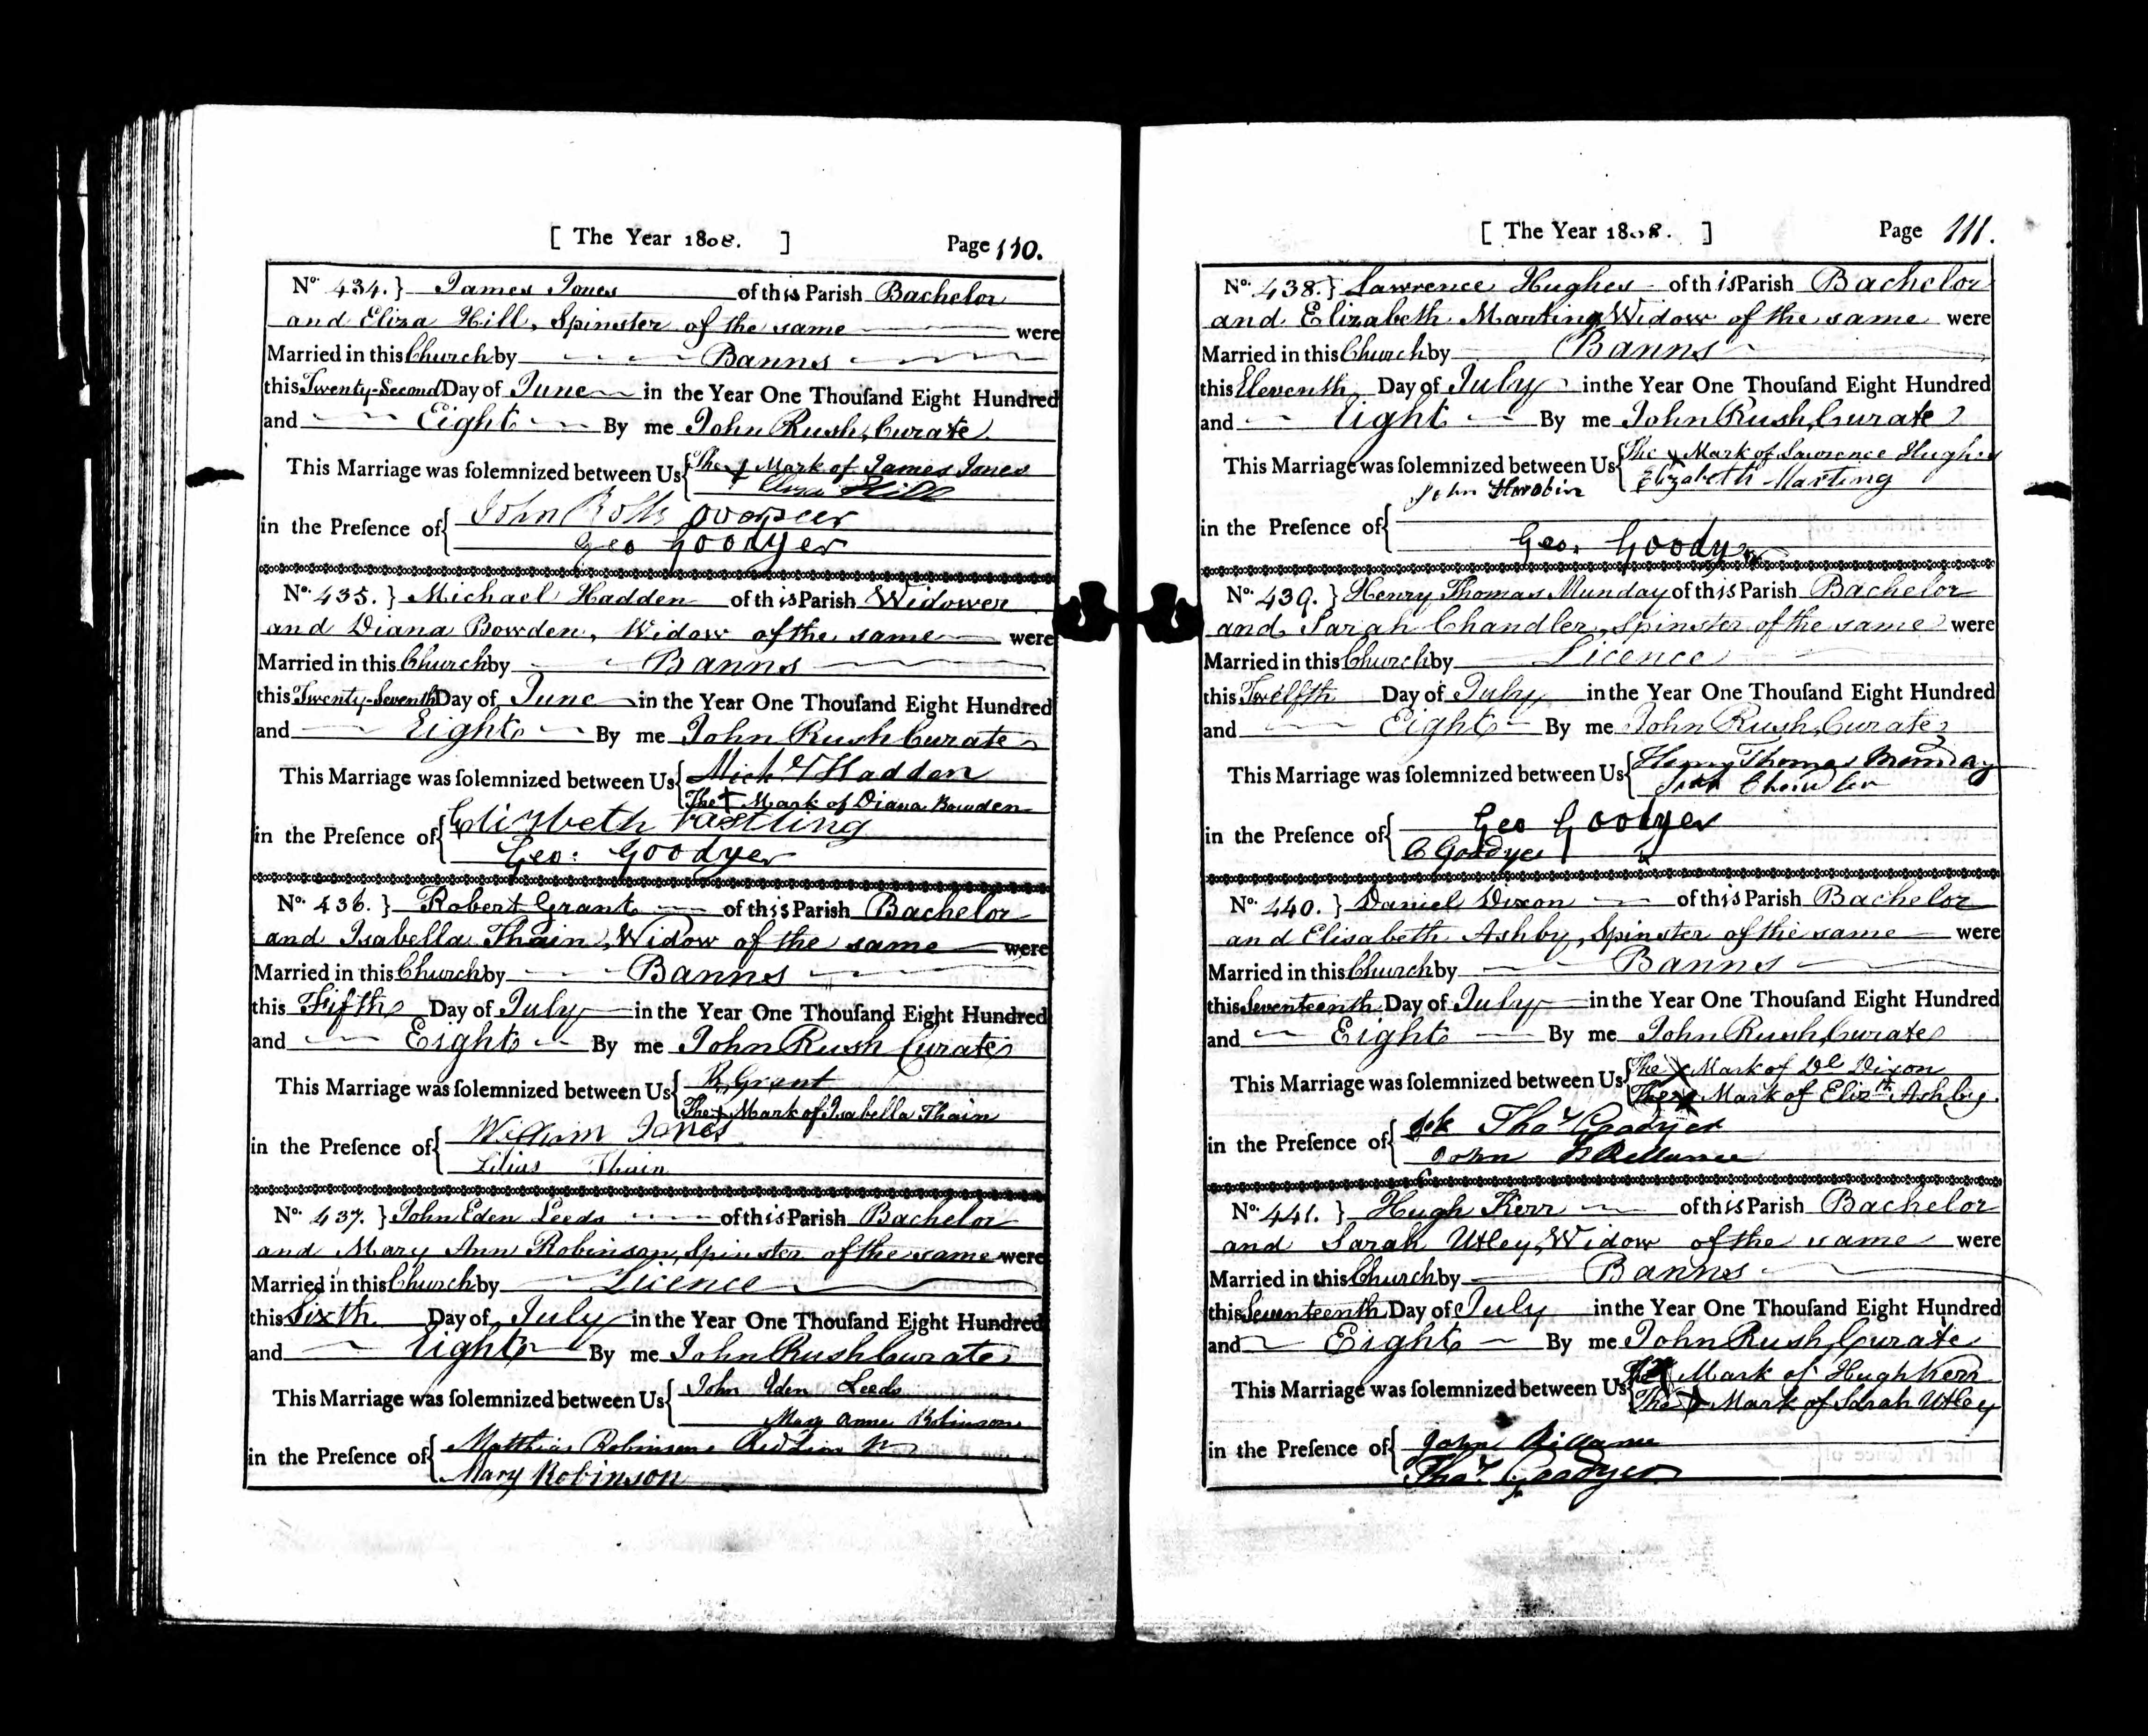 [ The Year 1808. ] Page 110.
No. 434. } James Jones of this Parish Bachelor
and Eliza Hill, Spinster of the same were
Married in this Church by Banns
this Twenty-Second Day of June in the Year One Thouſand Eight Hundred
and Eight By me John Rush, Curate
This Marriage was ſolemnized between Us { The + Mark of James Jones
Eliza Hill
in the Preſence of { John Rolls overseer
Geo Goodyer
No. 435. } Michael Hadden of this Parish Widower
and Diana Bowden, Widow of the same were
Married in this Church by Banns
this Twenty-Seventh Day of June in the Year One Thouſand Eight Hundred
and Eight By me John Rush Curate
This Marriage was ſolemnized between Us { Michl Hadden
The + Mark of Diana Bowden
in the Preſence of { Elizbeth
Geo: Goodyer
No. 436. } Robert Grant of this Parish Bachelor
and Isabella Thain, Widow of the same were
Married in this Church by Banns
this Fifth Day of July in the Year One Thouſand Eight Hundred
and Eight By me John Rush Curate
This Marriage was ſolemnized between Us { R Grant
The + Mark of Isabella Thain
in the Preſence of { William Jones
Lilias Thain
No. 437. } John Eden Leeds of this Parish Bachelor
and Mary Ann Robinson, Spinster of the same were
Married in this Church by Licence
this Sixth Day of July in the Year One Thouſand Eight Hundred
and Eight By me John Rush Curate
This Marriage was ſolemnized between Us { John Eden Leeds
Mary Anne Robinson
in the Preſence of { Matthias Robinson
Mary Robinson
[ The Year 1808. ] Page 111.
No. 438. } Lawrence Hughes of this Parish Bachelor
and Elizabeth Marting Widow of the same were
Married in this Church by Banns
this Eleventh Day of July in the Year One Thouſand Eight Hundred
and Eight By me John Rush, Curate
This Marriage was ſolemnized between Us { The x Mark of Lawrence Hughes
Elizabeth Marting
John
in the Preſence of {
Geo. Goodyer
No. 439. } Henry Thomas Munday of this Parish Bachelor
and Sarah Chandler, Spinster of the same were
Married in this Church by Licence
this Twelfth Day of July in the Year One Thouſand Eight Hundred
and Eight By me John Rush, Curate
This Marriage was ſolemnized between Us { Henry Thomas Munday
Chandler
in the Preſence of { Geo Goodyer
C Goodyer
No. 440. } Daniel Dixon of this Parish Bachelor
and Elisabeth Ashby, Spinster of the same were
Married in this Church by Banns
this Seventeenth Day of July in the Year One Thouſand Eight Hundred
and Eight By me John Rush, Curate
This Marriage was ſolemnized between Us { The x Mark of Dl Dixon
The x Mark of Elizth Ashby
in the Preſence of { Thos Goodyer
John
No. 441. } Hugh Kerr of this Parish Bachelor
and Sarah Utley, Widow of the same were
Married in this Church by Banns
this Seventeenth Day of July in the Year One Thouſand Eight Hundred
and Eight By me John Rush, Curate
This Marriage was ſolemnized between Us { The + Mark of Hugh Kerr
The + Mark of Sarah Utley
in the Preſence of { John
Thos. Goodyer